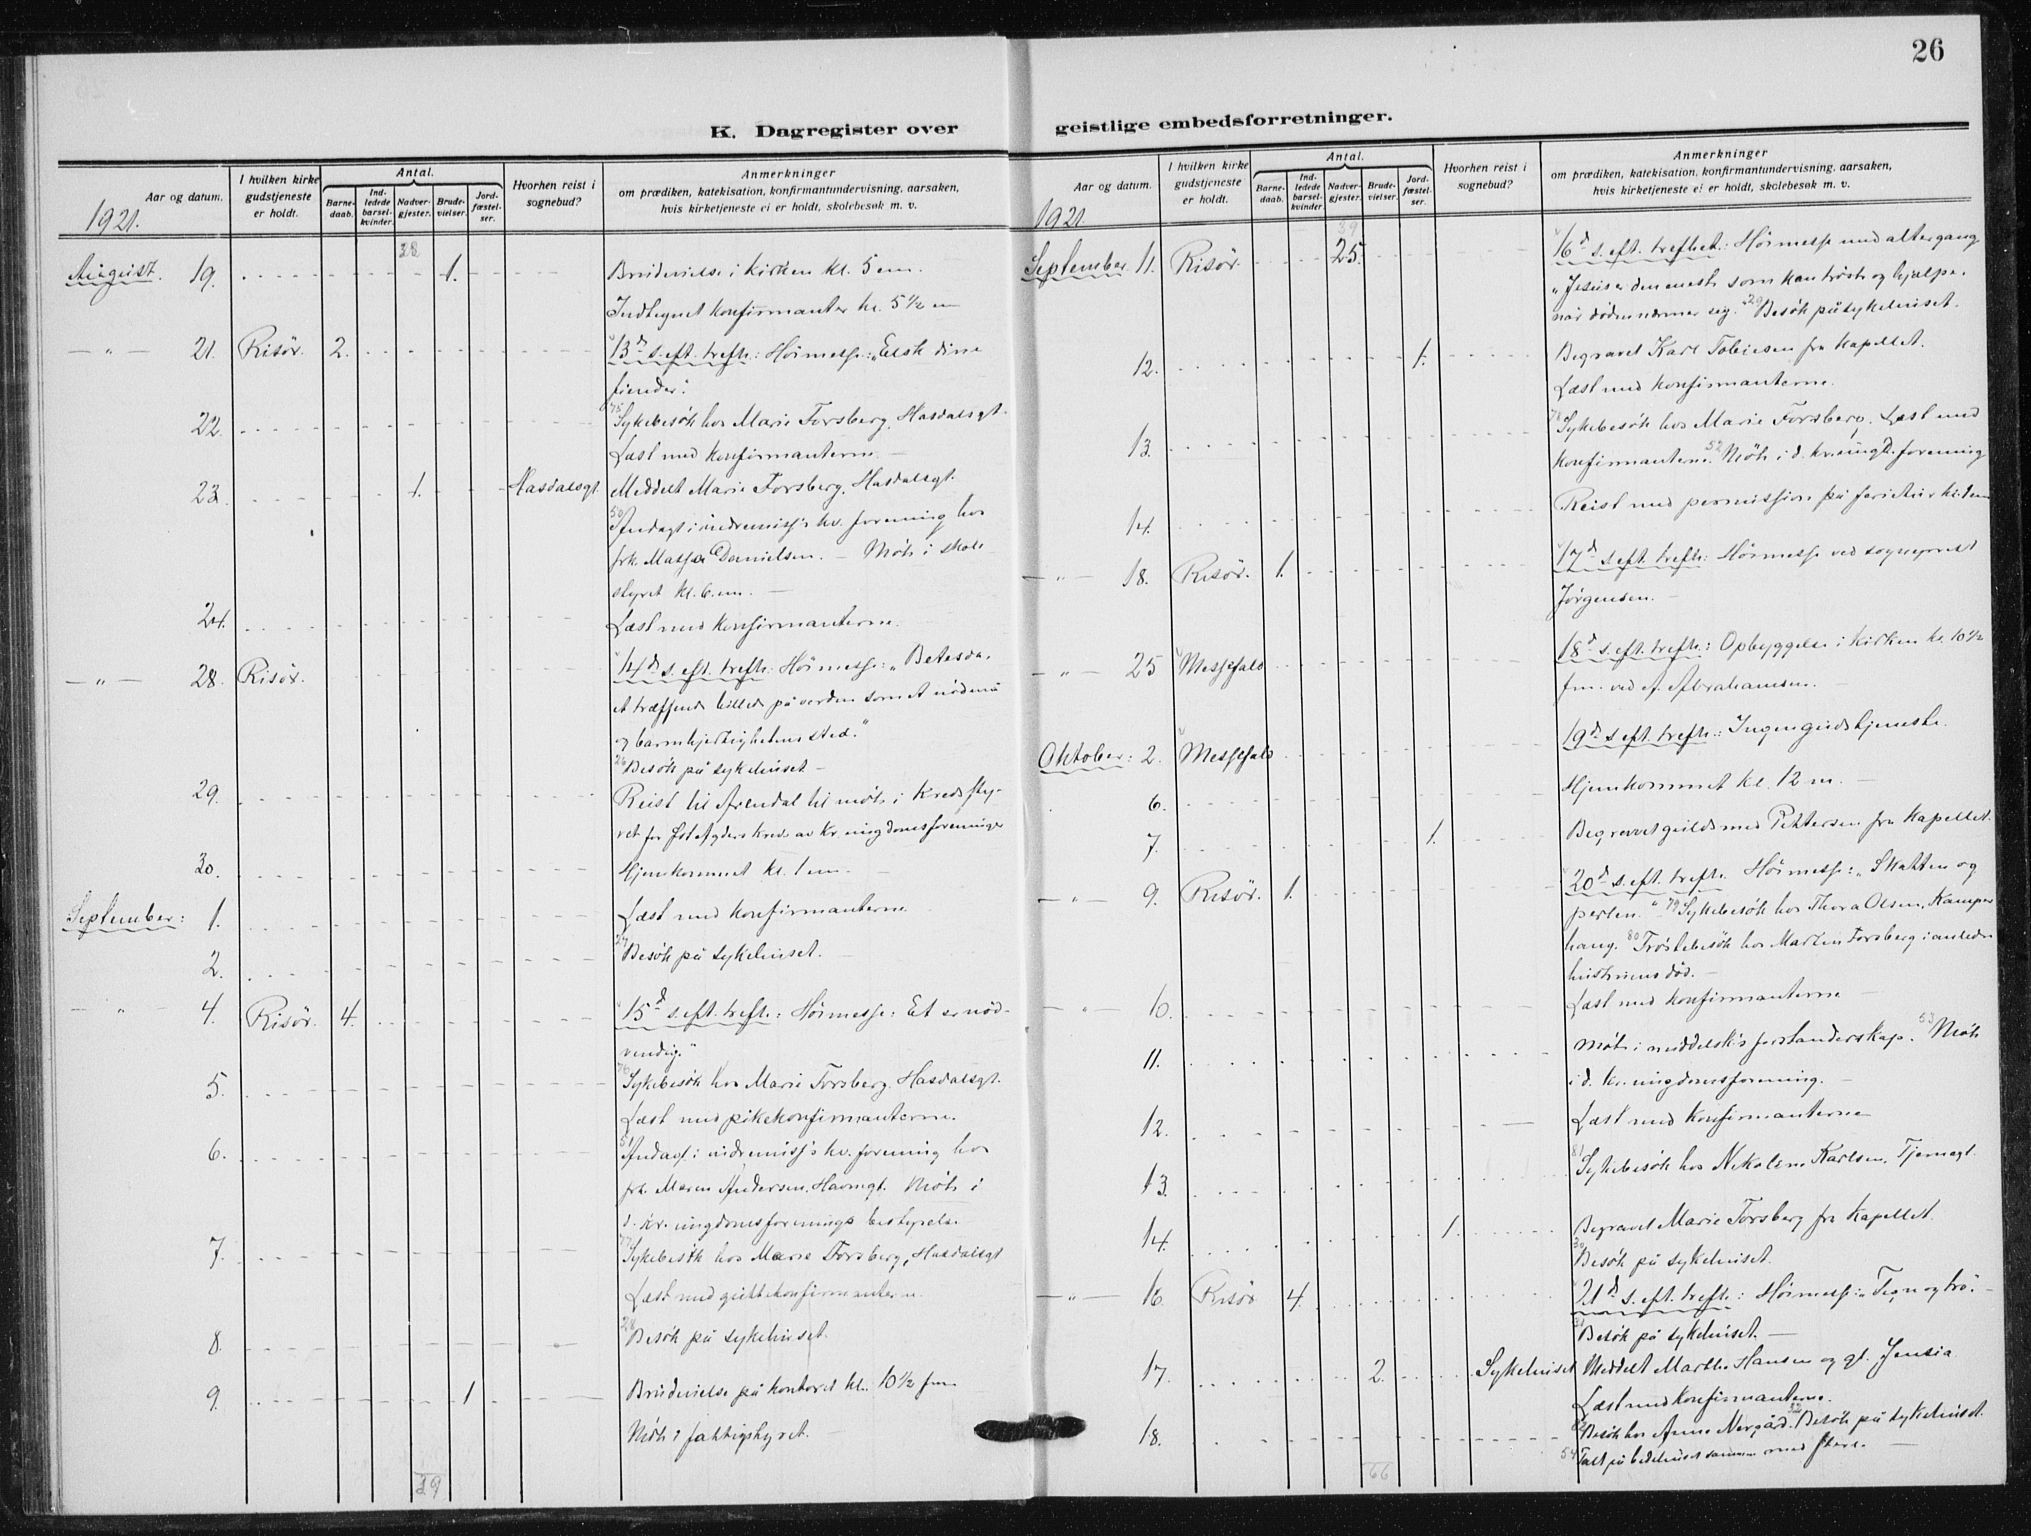 26
K. Dagregister over geistlige embedsforretninger.
Aar og datum.
I hvilken kirke gudstjeneste er holdt.
Antal.
Barnedaab.
Indledede barselkvinder.
Nadvergjester.
Brudevielser.
Jordfæstelser.
Hvorhen reist i sognebud?
Anmerkninger
om prædiken, katekisation, konfirmantundervisning, aarsaken,
hvis kirketjeneste ei er holdt, skolebesøk m. v.
1921.
38
August. 19. 1. Brudevielse i kirken kl. 5 em.
Indtegnet konfirmanter kl. 5 ½ em
— " — 21. Risör. 2. 13d s. eft. trefh.: Høimesse: "Elsk dine
fiender."
22. 75 Sykebesök hos Marie Forsberg, Hasdalsgt.
Læst med konfirmanterne. —
23. 1. Hasdalsgt. Meddelt Marie Forsberg, Hasdalsgt.
50 Andagt i indremissj's kv. forening hos
frk. Danielsen. — Möte i skole
styret kl. 6. em. —
24. Læst med konfirmanterne.
— " — 28. Risör. 14d s. eft. trefh.: Høimesse: "Betesda,
et træffende billede på verden som et nödens
og barmhjertighetens sted."
26 Besök på sykehuset —
29. Reist til Arendal til möte i Kredssty-
ret for Øst Agders kreds av kr. ungdomsforeninger
30. Hjemkommet kl. 1 em. —
September: 1. Læst med konfirmanterne.
2. 27 Besök på sykehuset. —
— " — 4. Risör. 4. 15d s. eft. trefh.: Høimesse: Et er nöd-
vendig."
5. 76 Sykebesök hos Marie Forsberg, Hasdalsgt.
Læst med pikekonfirmanterne.
6. 51 Andagt i indremissj's kv. forening hos
frk. Maren Andersen, Havnegt. Möte i
d. kr. ungdomsforenings bestyrelse
7. 77 Sykebesök hos Marie Forsberg, Hasdalsgt
Læst med guttekonfirmanterne.
8. 28 Besök på sykehuset.
9. 1 Brudevielse på kontoret kl. 10 ½ fm.
Möte i fattigstyret. —
39
Aar og datum.
I hvilken kirke gudstjeneste er holdt.
Antal.
Barnedaab.
Indledede barselkvinder.
Nadvergjester.
Brudevielser.
Jordfæstelser.
Hvorhen reist i sognebud?
Anmerkninger
om prædiken, katekisation, konfirmantundervisning, aarsaken,
hvis kirketjeneste ei er holdt, skolebesøk m. v.
1921.
39
September 11. Risör. 25. 16d s. eft. trefhet.: Høimesse med altergang
"Jesus er den eneste som kan tröste og hjælpe,
når döden nærmer sig." 29 Besök på sykehuset.
12. 1. Begravet Karl Tobiesen fra kapellet.
Læst med konfirmanterne.
13. 78 Sykebesök hos Marie Forsberg. Læst med
konfirmanterne. 52 Möte i d. kr. ungd. forening
14. Reist med permission på ferietur kl. 1 em
— " — 18. Risör. 1. 17d s. eft. trefh.: Høimesse ved sogneprest
Jørgensen. —
— " — 25 Messefald 18d s. eft. trefh.: Opbyggelse i kirken kl. 10 ½
fm. ved A. Abrahamsen. —
Oktober: 2. Messefald 19d s. eft. trefh.: Ingen gudstjeneste.
6. Hjemkommet kl. 12 m. —
7. 1. Begravet Pettersen fra kapellet.
— " — 9. Risör. 1. 20d s. eft. trefh. Høimesse: "Skatten og
perlen." 79 Sykebesök hos Thora Olsen, Kamper
haug. 80 Tröstebesök hos Martin Forsberg i anledn
hustruens död. —
— " — 10. Læst med konfirmanterne —
11. Möte i middelsk's forstanderskap. 53 Möte
i d. kr. ungdomsforening. —
12. Læst med konfirmanterne
13. 81 Sykebesök hos Nikoline Karlsen, Tjernegt.
14. 1. Begravet Marie Forsberg fra kapellet.
30 Besök på sykehuset.
— " — 16. Risör 4. 21d s. eft. trefh.: Høimesse: "Tegn og tro." —
31 Besök på sykehuset. —
17. 2. Sykehuset Meddelt Marthe Hansen og gl. Jensia
Læst med konfirmanterne.
18. Besök hos Anne Nergård. 32 Besök på sykehuset.
54 Talt på bedehuset sammen med flere. —
66